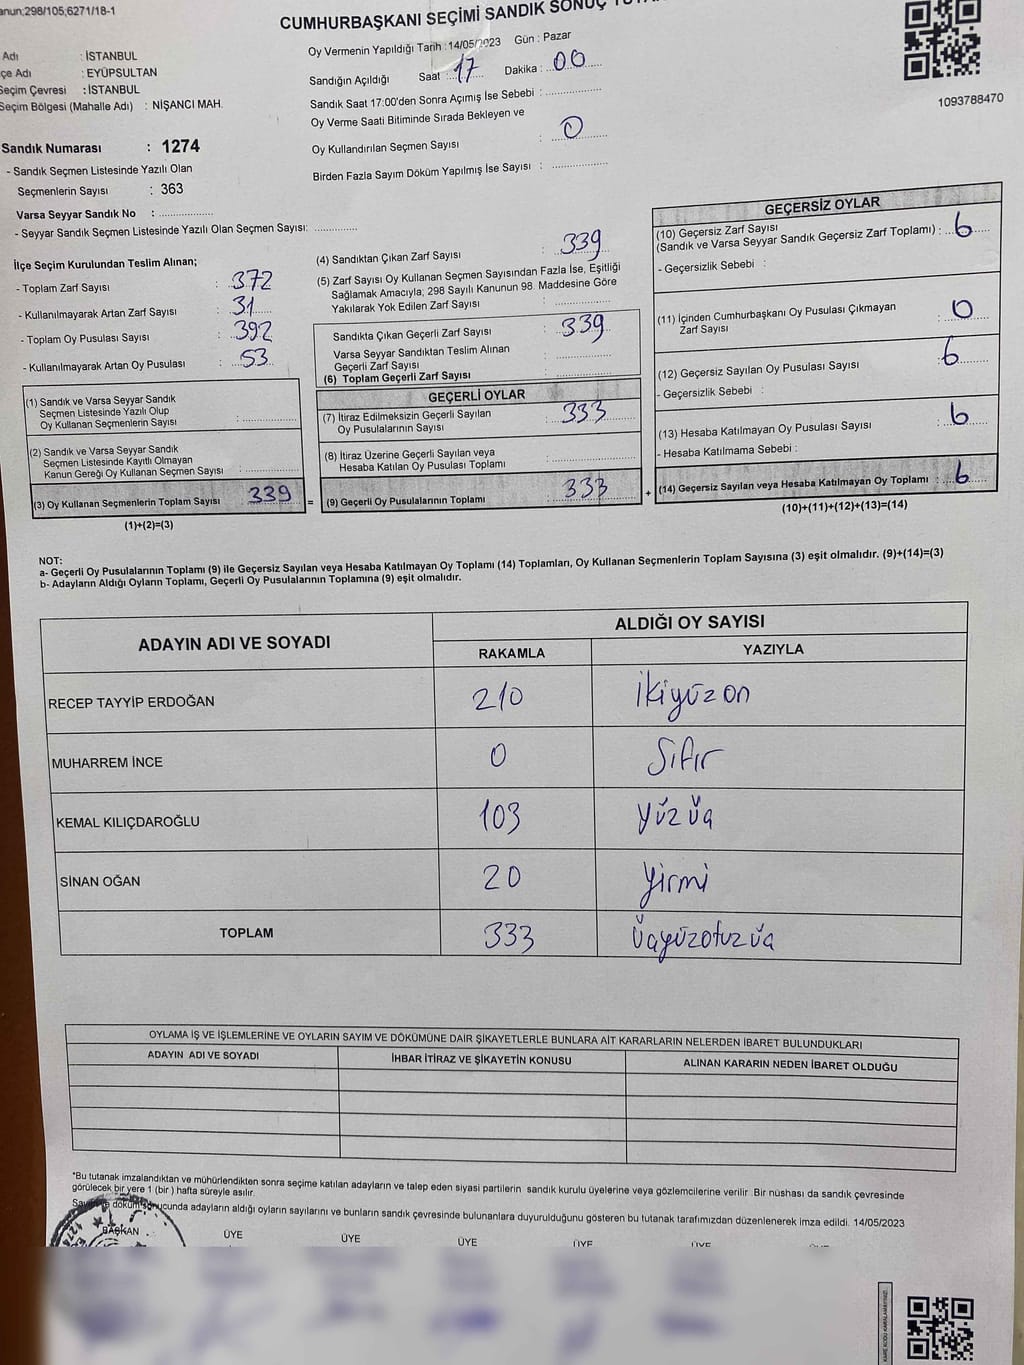 anun:298/105;6271/18-1
CUMHURBAŞKANI SEÇİMİ SANDIK SONUÇ
Adı : İSTANBUL
çe Adı : EYÜPSULTAN
Seçim Çevresi : İSTANBUL
Seçim Bölgesi (Mahalle Adı) : NİŞANCI MAH.
Sandık Numarası : 1274
- Sandık Seçmen Listesinde Yazılı Olan
Seçmenlerin Sayısı : 363
Varsa Seyyar Sandık No : ..................
- Seyyar Sandık Seçmen Listesinde Yazılı Olan Seçmen Sayısı: ..............
Oy Vermenin Yapıldığı Tarih : 14/05/2023 Gün : Pazar
Sandığın Açıldığı Saat : 17 Dakika : 00
Sandık Saat 17:00'den Sonra Açımış İse Sebebi : ..............
Oy Verme Saati Bitiminde Sırada Bekleyen ve
Oy Kullandırılan Seçmen Sayısı : 0
Birden Fazla Sayım Döküm Yapılmış İse Sayısı : ..............
1093788470
İlçe Seçim Kurulundan Teslim Alınan;
- Toplam Zarf Sayısı : 372
- Kullanılmayarak Artan Zarf Sayısı : 31
- Toplam Oy Pusulası Sayısı : 392
- Kullanılmayarak Artan Oy Pusulası : 53
(1) Sandık ve Varsa Seyyar Sandık
Seçmen Listesinde Yazılı Olup
Oy Kullanan Seçmenlerin Sayısı : ..............
(2) Sandık ve Varsa Seyyar Sandık
Seçmen Listesinde Kayıtlı Olmayan
Kanun Gereği Oy Kullanan Seçmen Sayısı : ..............
(3) Oy Kullanan Seçmenlerin Toplam Sayısı 339 =
(1)+(2)=(3)
(4) Sandıktan Çıkan Zarf Sayısı : 339
(5) Zarf Sayısı Oy Kullanan Seçmen Sayısından Fazla İse, Eşitliği
Sağlamak Amacıyla; 298 Sayılı Kanunun 98. Maddesine Göre
Yakılarak Yok Edilen Zarf Sayısı : ..............
Sandıkta Çıkan Geçerli Zarf Sayısı : 339
Varsa Seyyar Sandıktan Teslim Alınan
Geçerli Zarf Sayısı : ..............
(6) Toplam Geçerli Zarf Sayısı : ..............
GEÇERLİ OYLAR
(7) İtiraz Edilmeksizin Geçerli Sayılan
Oy Pusulalarının Sayısı : 333
(8) İtiraz Üzerine Geçerli Sayılan veya
Hesaba Katılan Oy Pusulası Toplamı : ..............
(9) Geçerli Oy Pusulalarının Toplamı : 333 +
GEÇERSİZ OYLAR
(10) Geçersiz Zarf Sayısı
(Sandık ve Varsa Seyyar Sandık Geçersiz Zarf Toplamı) : 6
- Geçersizlik Sebebi :
(11) İçinden Cumhurbaşkanı Oy Pusulası Çıkmayan
Zarf Sayısı : 0
(12) Geçersiz Sayılan Oy Pusulası Sayısı : 6
- Geçersizlik Sebebi :
(13) Hesaba Katılmayan Oy Pusulası Sayısı : 6
- Hesaba Katılmama Sebebi :
(14) Geçersiz Sayılan veya Hesaba Katılmayan Oy Toplamı : 6
(10)+(11)+(12)+(13)=(14)
NOT:
a- Geçerli Oy Pusulalarının Toplamı (9) ile Geçersiz Sayılan veya Hesaba Katılmayan Oy Toplamı (14) Toplamları, Oy Kullanan Seçmenlerin Toplam Sayısına (3) eşit olmalıdır. (9)+(14)=(3)
b- Adayların Aldığı Oyların Toplamı, Geçerli Oy Pusulalarının Toplamına (9) eşit olmalıdır.
ADAYIN ADI VE SOYADI ALDIĞI OY SAYISI
RAKAMLA YAZIYLA
RECEP TAYYİP ERDOĞAN 210 İkiyüzon
MUHARREM İNCE 0 Sıfır
KEMAL KILIÇDAROĞLU 103 Yüzüç
SİNAN OĞAN 20 Yirmi
TOPLAM 333 Üçyüzotuzüç
OYLAMA İŞ VE İŞLEMLERİNE VE OYLARIN SAYIM VE DÖKÜMÜNE DAİR ŞİKAYETLERLE BUNLARA AİT KARARLARIN NELERDEN İBARET BULUNDUKLARI
ADAYIN ADI VE SOYADI İHBAR İTİRAZ VE ŞİKAYETİN KONUSU ALINAN KARARIN NEDEN İBARET OLDUĞU
*Bu tutanak imzalandıktan ve mühürlendikten sonra seçime katılan adayların ve talep eden siyasi partilerin sandık kurulu üyelerine veya gözlemcilerine verilir. Bir nüshası da sandık çevresinde
görülecek bir yere 1 (bir ) hafta süreyle asılır.
döküm sonucunda adayların aldığı oyların sayılarını ve bunların sandık çevresinde bulunanlara duyurulduğunu gösteren bu tutanak tarafımızdan düzenlenerek imza edildi. 14/05/2023
BAŞKAN ÜYE ÜYE ÜYE ÜYE ÜYE